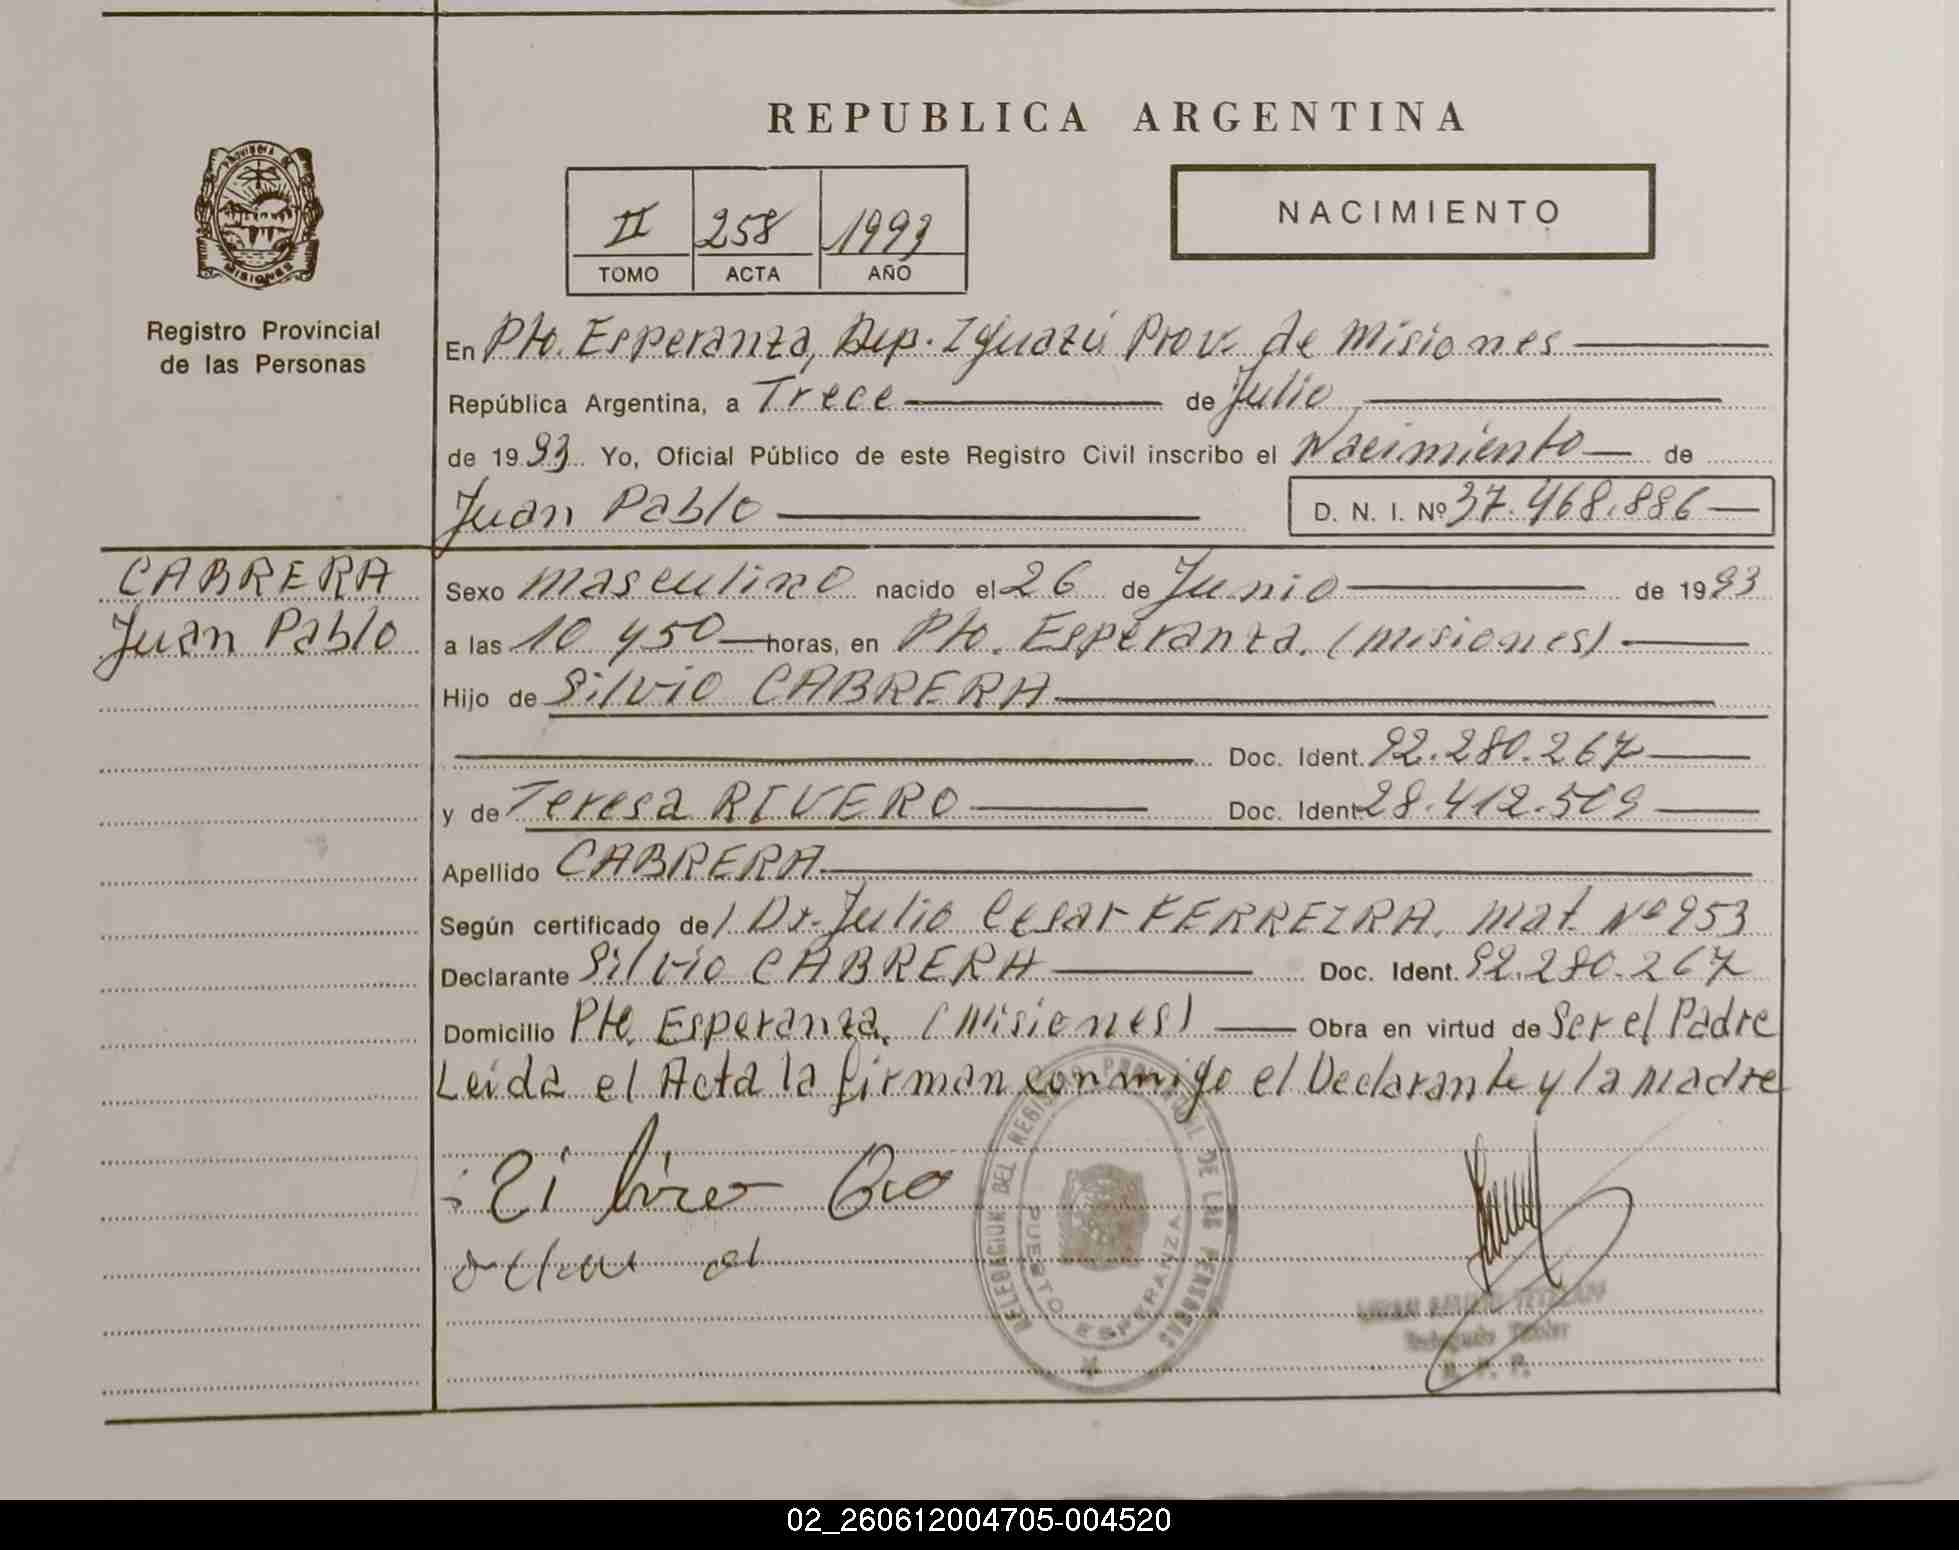 REPUBLICA ARGENTINA
PROVINCIA DE
MISIONES
Registro Provincial
de las Personas
II 258 1993
TOMO ACTA AÑO
NACIMIENTO
En Pto. Esperanza, Dep. Iguazú Prov. de Misiones
República Argentina, a Trece de Julio
de 1993 Yo, Oficial Público de este Registro Civil inscribo el Nacimiento de
Juan Pablo D. N. I. Nº 37.468.886
CABRERA
Juan Pablo
Sexo Masculino nacido el 26 de Junio de 1993
a las 10 y 50 horas, en Pto. Esperanza. (Misiones)
Hijo de Silvio CABRERA
Doc. Ident. 92.280.267
y de Teresa RIVERO Doc. Ident. 28.412.509
Apellido CABRERA
Según certificado del Dr. Julio Cesar FERREIRA. Mat. Nº 953
Declarante Silvio CABRERA Doc. Ident. 92.280.267
Domicilio Pto. Esperanza. (Misiones) Obra en virtud de Ser el Padre
Leída el Acta la firman conmigo el Declarante y la madre
DELEGACION DEL REGISTRO PROVINCIAL DE LAS PERSONAS
PUERTO ESPERANZA
02_260612004705-004520